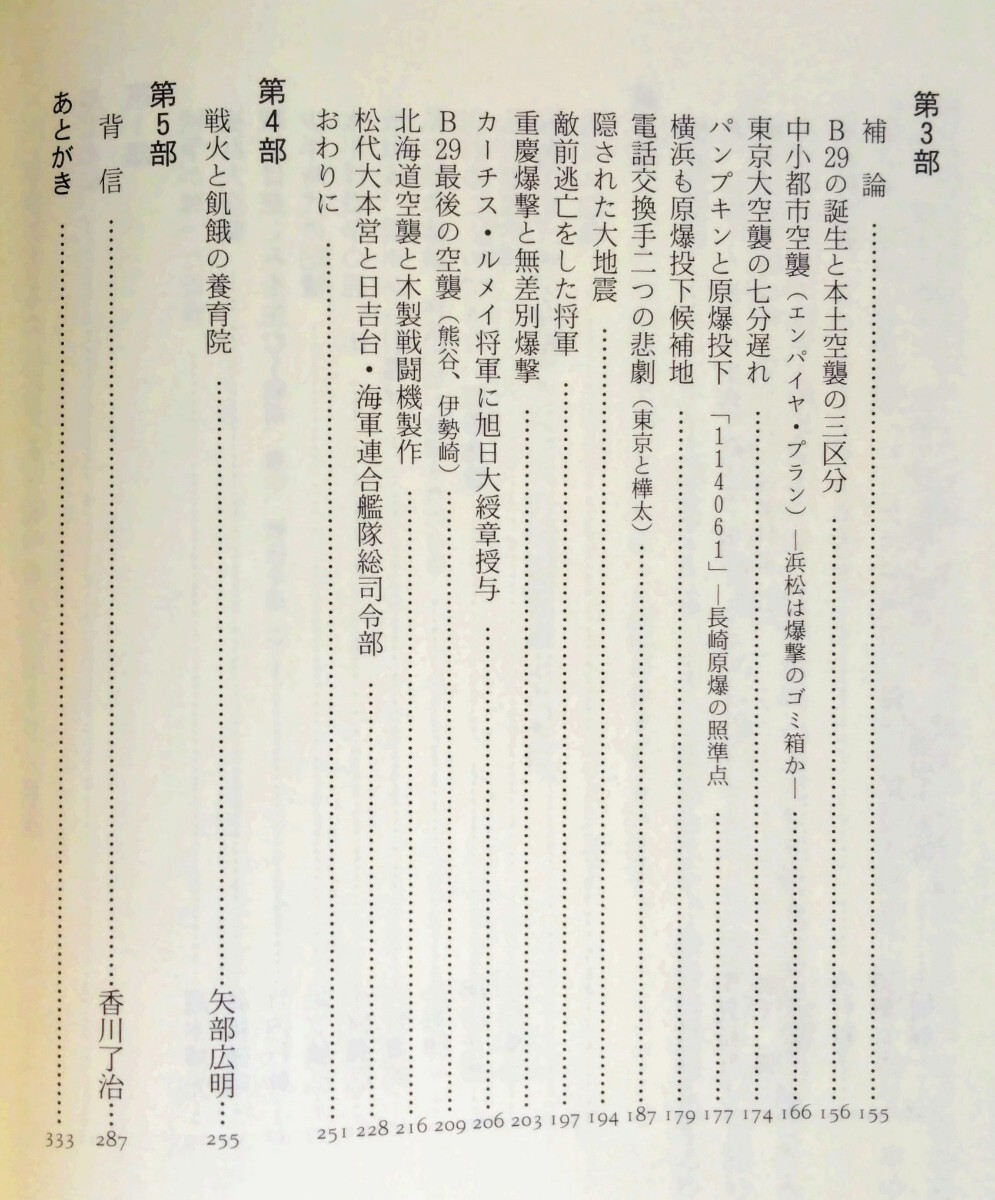 第3部
補論……………………………………155
B29の誕生と本土空襲の三区分……………………156
中小都市空襲（エンパイヤ・プラン）―浜松は爆撃のゴミ箱か―……………166
東京大空襲の七分遅れ……………………174
パンプキンと原爆投下 「114061」―長崎原爆の照準点……………177
横浜も原爆投下候補地……………………179
電話交換手二つの悲劇（東京と樺太）……………………187
隠された大地震……………………194
敵前逃亡をした将軍……………………197
重慶爆撃と無差別爆撃……………………203
カーチス・ルメイ将軍に旭日大綬章授与……………………206
B29最後の空襲（熊谷、伊勢崎）……………………209
北海道空襲と木製戦闘機製作……………………216
松代大本営と日吉台・海軍連合艦隊総司令部……………………228
おわりに……………………251
第4部
戦火と飢餓の養育院……………………矢部広明…255
第5部
背信……………………香川了治…287
あとがき……………………333